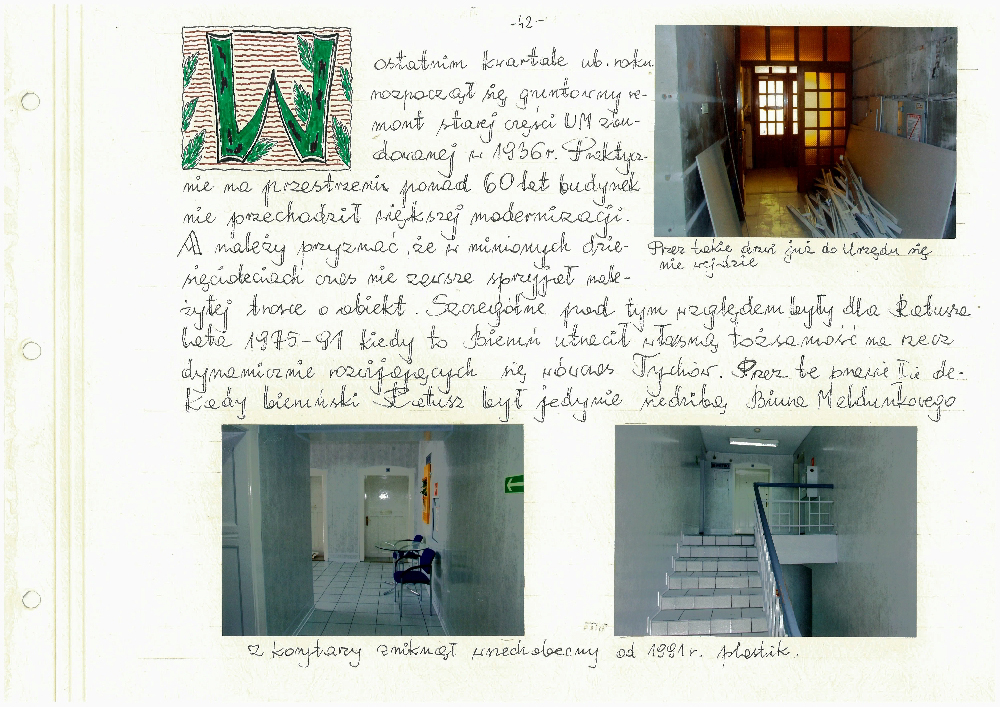 -42-
W
ostatnim kwartale ub. roku
rozpoczął się gruntowny re-
mont starej części UM zbu-
dowanej w 1936r. Praktycz-
nie na przestrzeni ponad 60 lat budynek
nie przechodził większej modernizacji.
A należy przyznać, że w minionych dzie-
sięcioleciach czas nie zawsze sprzyjał nale-
żytej trosce o obiekt. Szczególne pod tym względem były dla Ratusza
lata 1975-91 kiedy to Bieruń utracił własną tożsamość na rzecz
dynamicznie rozwijających się wówczas Tychów. Przez te prawie dwie de-
kady bieruński Ratusz był jedynie siedzibą Biura Meldunkowego
Przez takie drzwi już do Urzędu się
nie wejdzie
Z korytarzy zniknął wszechobecny od 1991r. plastik.